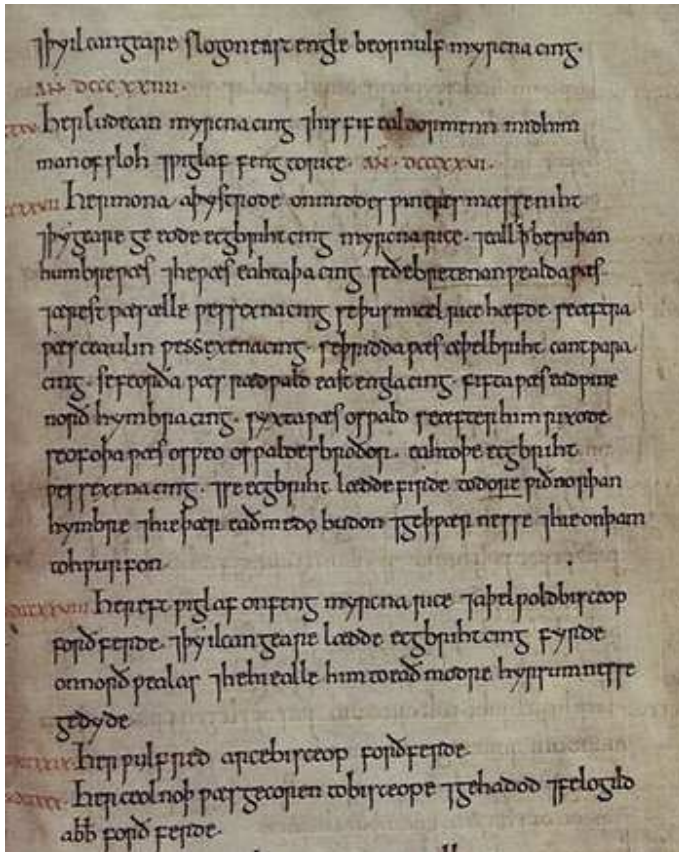 ⁊þy ilcan geare slogon east engle beornulf myrcna cing.
AN̄. DCCCXXIIII.
Her ludecan myrcna cing ⁊his fif ealdormenn mid him
man ofsloh ⁊ƿiglaf feng to rice. AN̄. DCCCXXVI.
Her mona aþystrode on middes ƿintres mæsseniht
⁊þy geare ge eode ecgbriht cing myrcna rice. ⁊eall ꝥ be suþan
humbre ƿæs ⁊he ƿæs eahtaþa cing se ðe bretenanƿealda ƿæs.
⁊ærest ƿæs ælle ƿessexna cing se þus micel rice hæfde. se æftra
ƿæs ceaulin ƿessexena cing. se þridda ƿæs æþelbriht cantƿara
cing. se feorða ƿæs rædƿald east engla cing. fifta ƿæs eadƿine
norð hymbra cing. syxta ƿæs osƿald se æfter him rixode.
seofoþa ƿæs osƿeo osƿaldes broðor. eahtoþe ecgbriht
ƿessexena cing. ⁊se ecgbriht lædde firde to dore ƿið norþan
hymbre ⁊hie þær eadmedo budon ⁊geþƿærnesse ⁊hie on þam
tohƿurfon.
Her eft ƿiglaf onfeng myrcna rice ⁊aþelƿold bisceop
forð ferde. ⁊þy ilcan geare lædde ecgbriht cing fyrde
on norð ƿealas ⁊he hi ealle him to eað modre hyrsumnesse
gedyde
Her ƿulfred arcebisceop forð ferde.
Her ceolnoþ ƿæs gecoren to bisceope ⁊gehadod ⁊felogild
abb forð ferde.